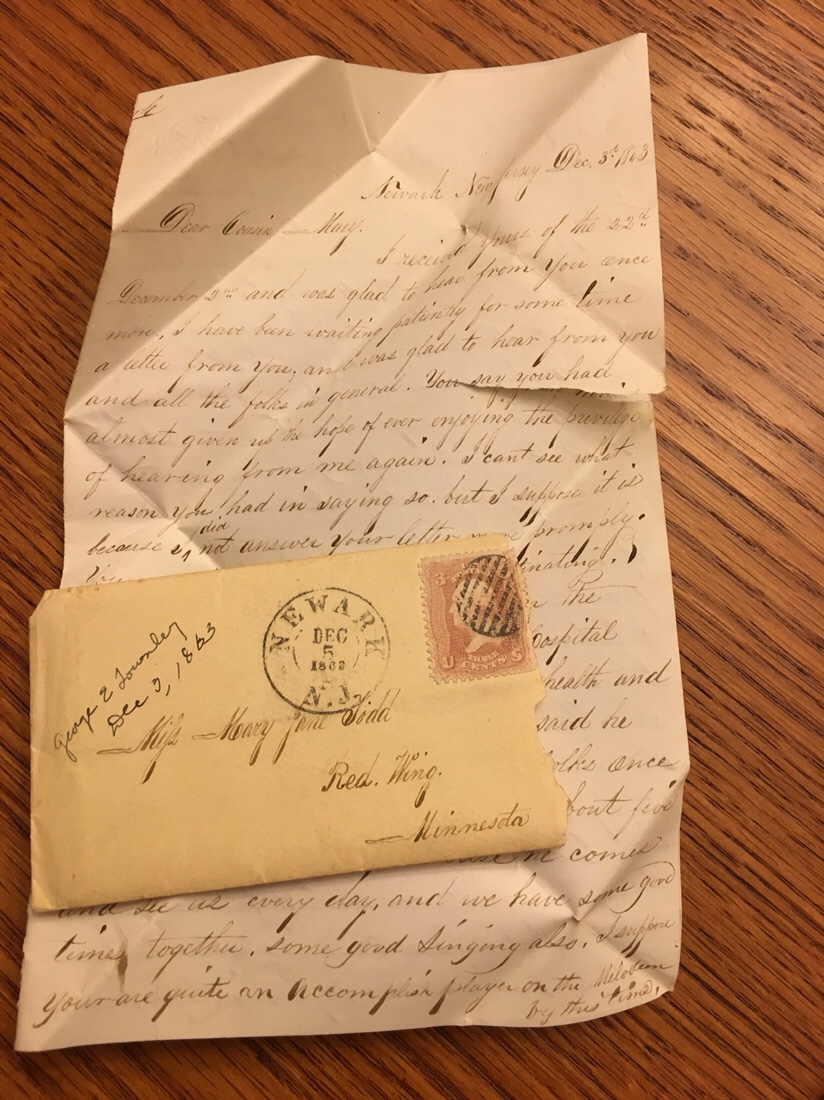 Newark New Jersey Dec. 3rd 1863
Dear Cousin Mary.
I received yours of the 22nd
December 2nd and was glad to hear from you once
more, I have been waiting patiently for some time
a letter from You, and was glad to hear from you
and all the folks in general. You say you had
almost given up the hope of ever enjoying the privilege
of hearing from me again. I cant see what
reason you had in saying so. but I suppose it is
because I did not answer your letter more promply.
You
the
Hospital
health and
said he
folks once
about five
he comes
and see us every day, and we have some good
time together. some good Singing also. I suppose
Your are quite an accomplish player on the Melodeon
by this time.
George E Townley
Dec 3, 1863
NEWARK
DEC
5
N.J.
3
U THREE CENTS S
Miss Mary Jane Todd
Red. Wing.
Minnesota